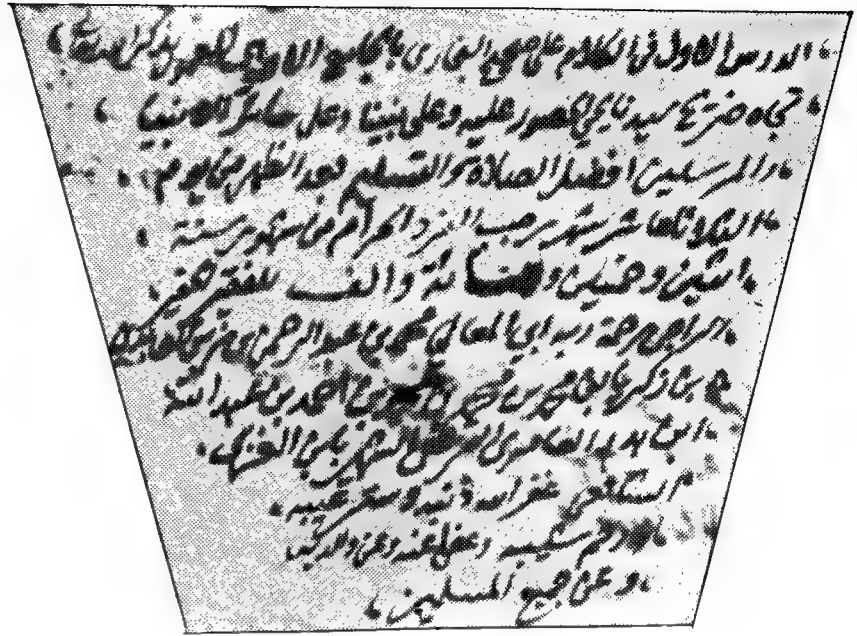 الدرس الاول في الكلام على صحيح البخاري بالجامع الاموي المعمور بذكر الله تعالى
تجاه ضريح سيدنا يحيى الحصور عليه وعلى نبينا وعلى سائر الانبيا
والمرسلين افضل الصلاة والتسليم بعد الظهر من يوم
الثلاثا عاشر شهر رجب الفرد الحرام من شهور سنة
اثنين وخمسين ومائة والف للفقير الحقير
الراجي رحمة ربه ابي المعالي محمد بن عبد الرحمن بن زين العابدين
بن زكريا بن محمد بن محمد بن محمد بن احمد بن عبد الله
ابن بدر العامري القرشي الشهير بابن الغزي
الشافعي غفر الله ذنبه وستر عيبه
ورحم شيبه وعفى عنه وعن والديه
وعن جميع المسلمين